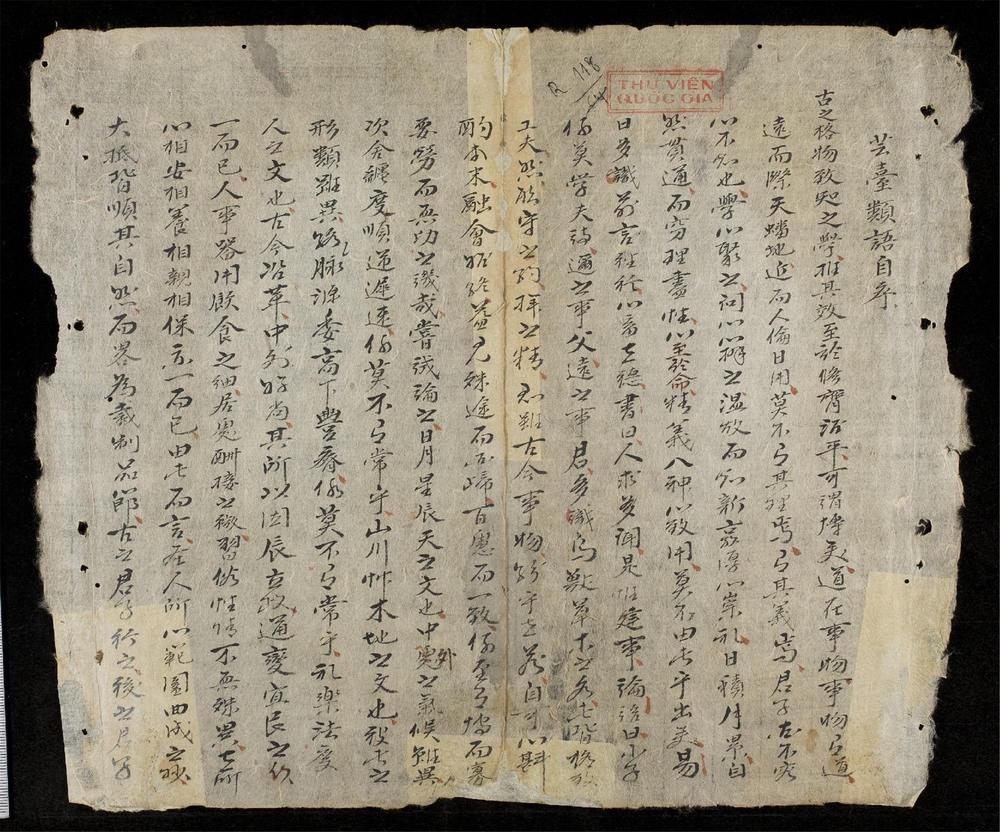 芸臺類語自序
古之格物致知之學推其效至於修齊治平可謂博矣道在事物事物之道
遠而際天蟠地近而人倫日用莫不有其理焉有其義焉君子
心不知也學以聚之問以辨之温故而知新敦厚以崇礼日積月累自
然貫通而窮理盡性以至於命精義入神以致用莫不由此乎出矣易
曰多識前言往行以畜其德書曰人求多聞是惟建事論語曰小子
何莫學夫詩邇之事父遠之事君多識鳥獸草木之名此皆格致
工夫然能守之約擇之精 雖古今事物紛乎其前自可以斟
酌本末融會始終益見殊途而同歸百慮而一致何至有博而寡
要勞而無功之譏哉嘗試論之日月星辰天之文也中外氣候雖異
次舍躔度順逆遲速何莫不有常乎山川艸木地之文也
形類雖異 脉源委高下豐瘠何莫不有常乎礼樂法度
人之文也古今沿革中外好尚其所以因辰立政通變宜民之
一而已人事器用飲食之細居處酬接之微習俗性情不無殊異其所
以相安相養相親相保亦一而已由此而言在人所以範圍曲成之
大抵皆順其自然而畧為裁制品節古之君子行之後之君子
R 118
THƯ VIỆN
QUỐC GIA